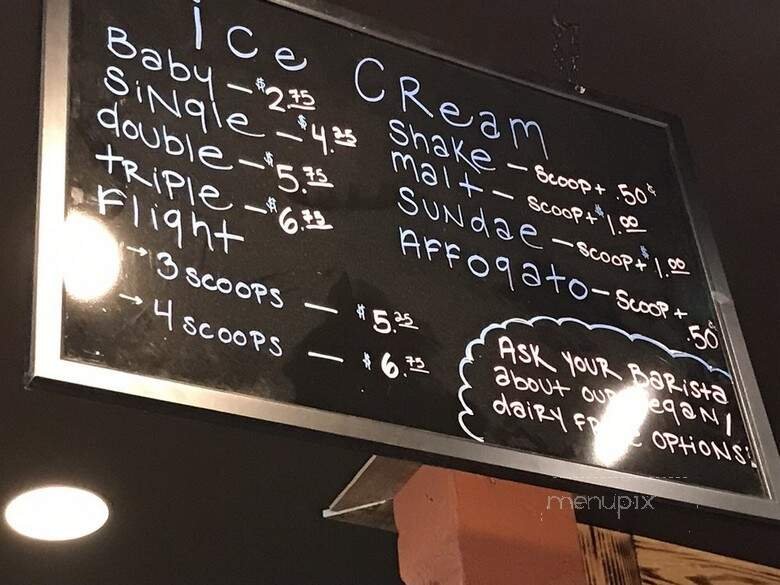 Ice CReam
Baby - $2.75
SiNgle - $4.25
double - $5.75
tRiPle - $6.75
Flight
→ 3 scoops - $5.25
→ 4 scoops - $6.75
Shake - Scoop + .50¢
malt - Scoop + $1.00
SuNdae - Scoop + $1.00
AFFogato - Scoop +
.50¢
ASK YOUR BaRista
about our vegan/
dairy FRee OPtiONS!
menupix